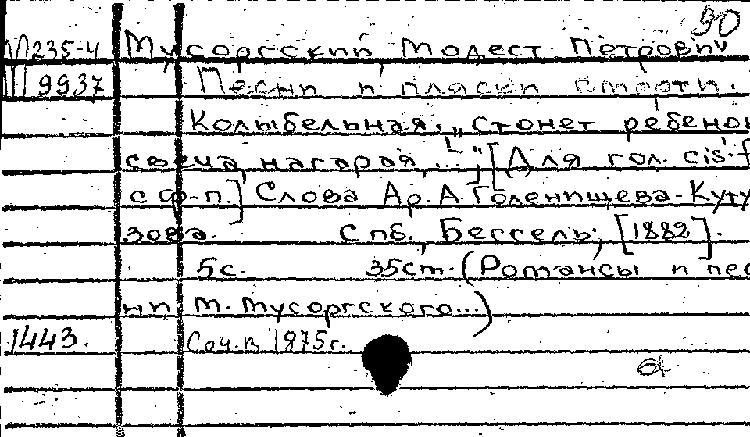 90
М235-4 Мусоргский, Модест Петрович
III 9937 Песни и пляски смерти.
Колыбельная. „Стонет ребенок
свеча, нагорая,..."; [Для гол. cis'-f
с ф-п.] Слова Ар. А Голенищева-Куту
зова. Спб., Бессель, [1882].
5с. 35ст. (Романсы и пес
ни М. Мусоргского...)
1443. Соч. в 1875г.